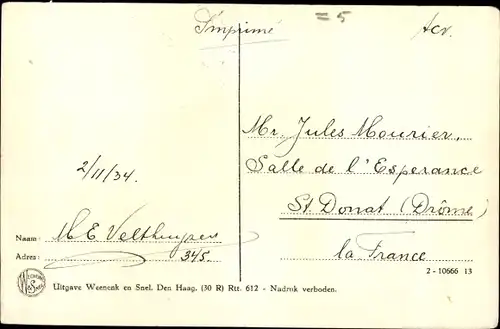 Imprimé
= 5
Acr.
Mr. Jules Mourier,
Salle de l'Esperance
St. Donat (Drôme)
la France
2/11/34.
Naam: M E Velthuysen
Adres: 345.
2 - 10666 13
Uitgave Weenenk en Snel. Den Haag. (30 R) Rtt. 612 - Nadruk verboden.